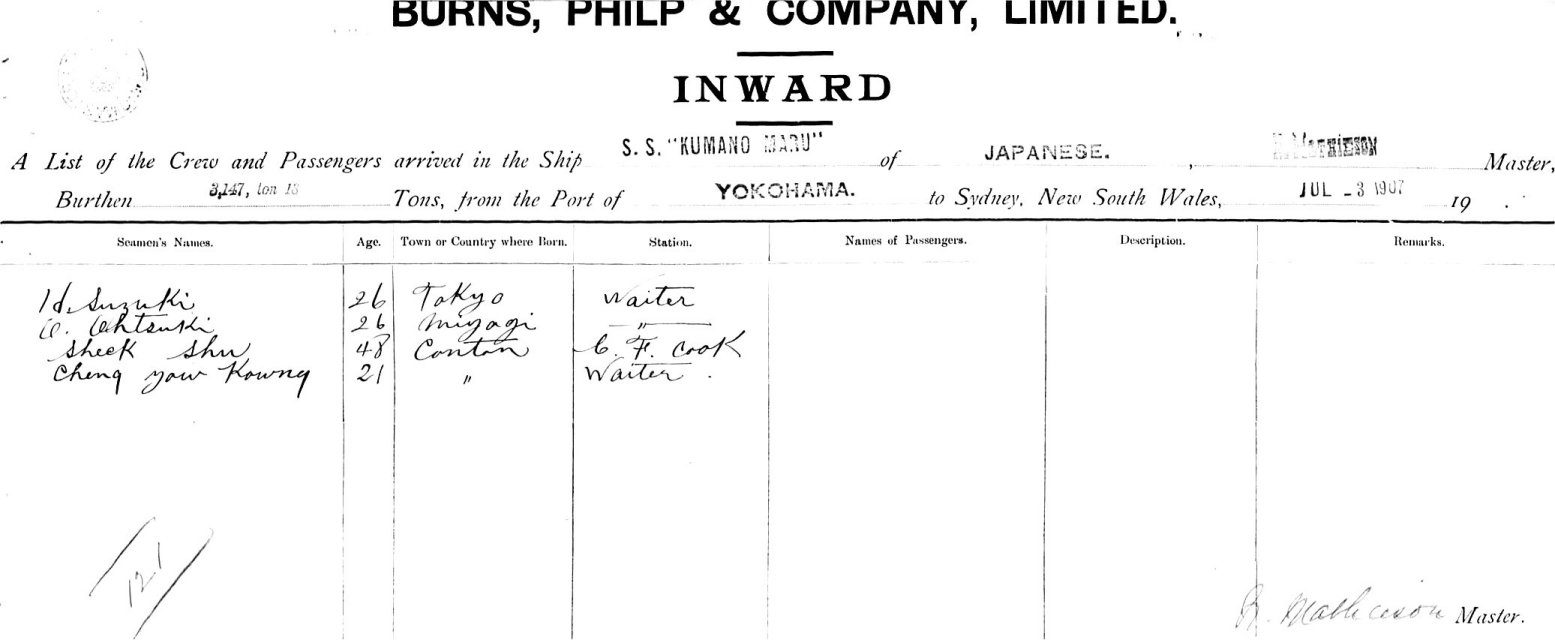 BURNS, PHILP & COMPANY, LIMITED.
INWARD
A List of the Crew and Passengers arrived in the Ship S. S. "KUMANO MARU" of JAPANESE. , Master,
Burthen 3,147, ton 13 Tons, from the Port of YOKOHAMA. to Sydney, New South Wales, JUL -3 1907 19 .
Seamen's Names. Age. Town or Country where Born. Station. Names of Passengers. Description. Remarks.
H. Suzuki 26 Tokyo Waiter
Ohtsuki 26 Miyagi "
Sheck Shu 48 Canton C. F. Cook
Cheng Yow Kowng 21 " Waiter .
121
Mathieson Master.